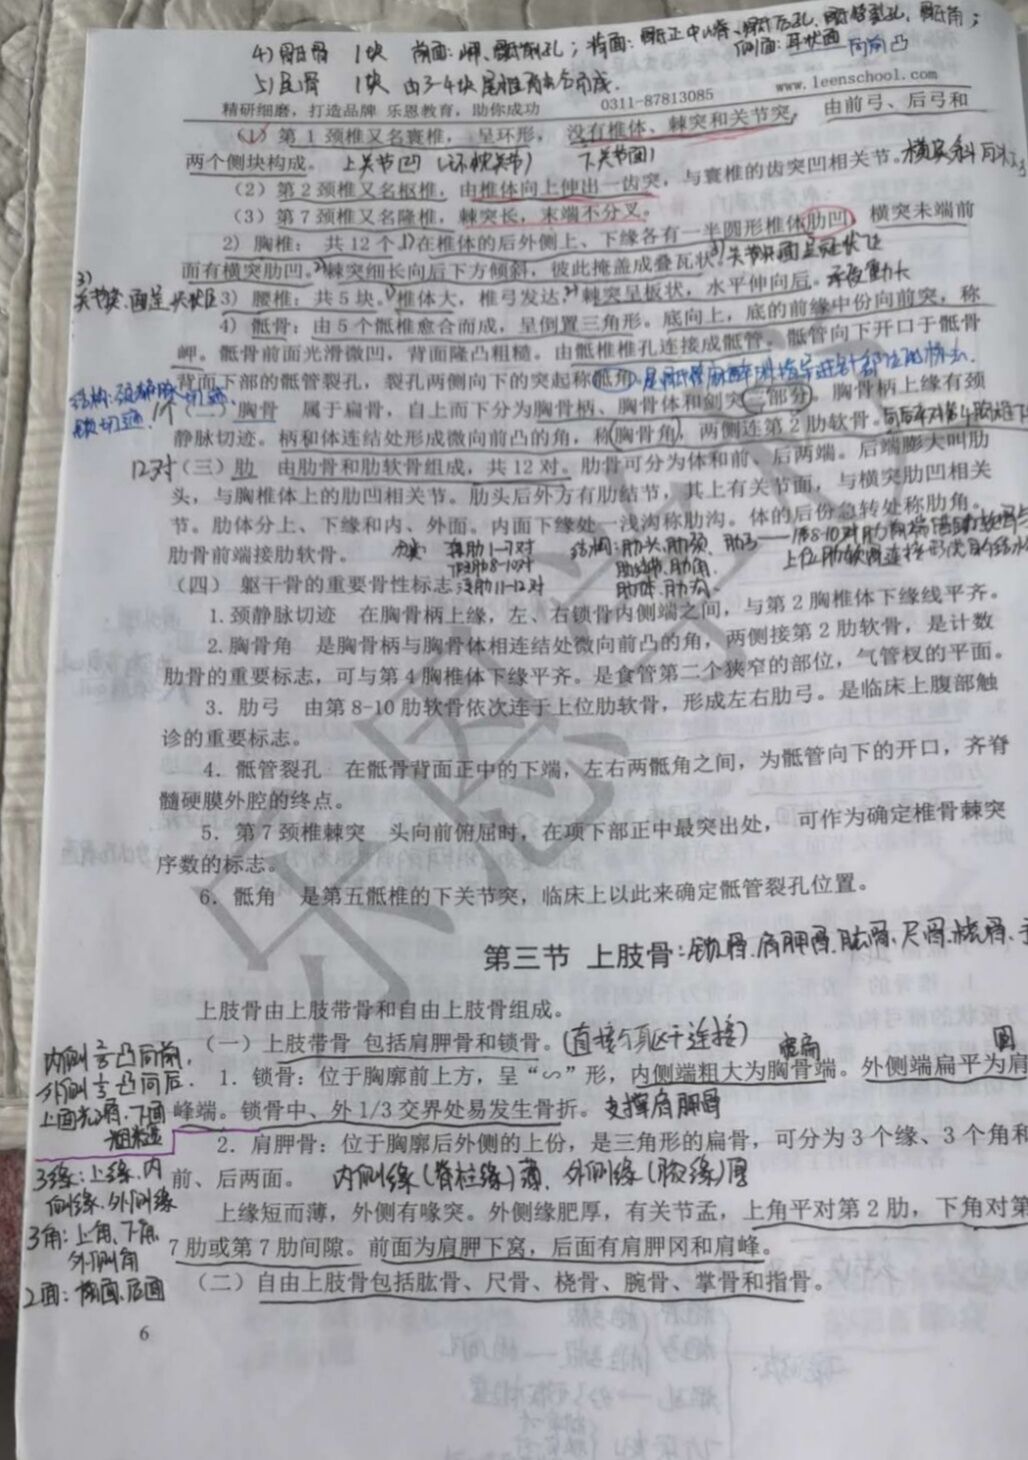 4) 骶骨 1块 前面:岬、骶前孔;背面:骶正中嵴、骶后孔、骶管裂孔、骶角;
侧面:耳状面 向前凸
5) 尾骨 1块 由3-4块尾椎融合而成.
精研细磨，打造品牌 乐恩教育，助你成功 0311-87813085 www.leenschool.com
（1）第 1 颈椎又名寰椎，呈环形，没有椎体、棘突和关节突，由前弓、后弓和
两个侧块构成。上关节凹（环枕关节） 下关节面
（2）第 2 颈椎又名枢椎，由椎体向上伸出一齿突，与寰椎的齿突凹相关节。
（3）第 7 颈椎又名隆椎，棘突长，末端不分叉。
2）胸椎： 共 12 个 1)在椎体的后外侧上、下缘各有一半圆形椎体肋凹，横突未端前
面有横突肋凹。2)棘突细长向后下方倾斜，彼此掩盖成叠瓦状。3)关节突面呈冠状位
3)
关节突面呈矢状位
3）腰椎：共 5 块。1)椎体大，椎弓发达。2)棘突呈板状，水平伸向后。
4）骶骨：由 5 个骶椎愈合而成，呈倒置三角形。底向上，底的前缘中份向前突，称
岬。骶骨前面光滑微凹，背面隆凸粗糙。由骶椎椎孔连接成骶管。骶管向下开口于骶骨
背面下部的骶管裂孔，裂孔两侧向下的突起称骶角。
结构:颈静脉切迹、
锁切迹. 1个
（二）胸骨 属于扁骨，自上而下分为胸骨柄、胸骨体和剑突三部分。胸骨柄上缘有颈
静脉切迹。柄和体连结处形成微向前凸的角，称胸骨角，两侧连第 2 肋软骨。向后平对第4胸椎下
12对（三）肋 由肋骨和肋软骨组成，共 12 对。肋骨可分为体和前、后两端。后端膨大叫肋
头，与胸椎体上的肋凹相关节。肋头后外方有肋结节，其上有关节面，与横突肋凹相关
节。肋体分上、下缘和内、外面。内面下缘处一浅沟称肋沟。体的后份急转处称肋角。
肋骨前端接肋软骨。 分类 真肋1-7对 结构:肋头.肋颈. 肋弓——第8-10对肋
假肋8-10对 肋结节.肋角.
（四） 躯干骨的重要骨性标志 浮肋11-12对 肋体.肋沟.
1.颈静脉切迹 在胸骨柄上缘，左、右锁骨内侧端之间，与第 2 胸椎体下缘线平齐。
2.胸骨角 是胸骨柄与胸骨体相连结处微向前凸的角，两侧接第 2 肋软骨，是计数
肋骨的重要标志，可与第 4 胸椎体下缘平齐。是食管第二个狭窄的部位，气管杈的平面。
3．肋弓 由第 8-10 肋软骨依次连于上位肋软骨，形成左右肋弓。是临床上腹部触
诊的重要标志。
4．骶管裂孔 在骶骨背面正中的下端，左右两骶角之间，为骶管向下的开口，齐脊
髓硬膜外腔的终点。
5．第 7 颈椎棘突 头向前俯屈时，在项下部正中最突出处， 可作为确定椎骨棘突
序数的标志。
6．骶角 是第五骶椎的下关节突，临床上以此来确定骶管裂孔位置。
第三节 上肢骨:锁骨.肩胛骨.肱骨.尺骨.桡骨.手
上肢骨由上肢带骨和自由上肢骨组成。
（一）上肢带骨 包括肩胛骨和锁骨。（直接与躯干连接）
内侧2/3凸向前,
外侧1/3凸向后.
上面光滑,下面
粗糙
宽扁 圆
1．锁骨：位于胸廓前上方，呈“∽”形，内侧端粗大为胸骨端。外侧端扁平为肩
峰端。锁骨中、外 1/3 交界处易发生骨折。支撑肩胛骨
2．肩胛骨：位于胸廓后外侧的上份，是三角形的扁骨，可分为 3 个缘、3 个角和
前、后两面。 内侧缘（脊柱缘）薄、外侧缘（腋缘）厚
3缘:上缘.内
侧缘.外侧缘
3角:上角、下角、
外侧角
2面:前面.后面
上缘短而薄，外侧有喙突。外侧缘肥厚，有关节盂，上角平对第 2 肋，下角对第
7 肋或第 7 肋间隙。前面为肩胛下窝，后面有肩胛冈和肩峰。
（二）自由上肢骨包括肱骨、尺骨、桡骨、腕骨、掌骨和指骨。
6